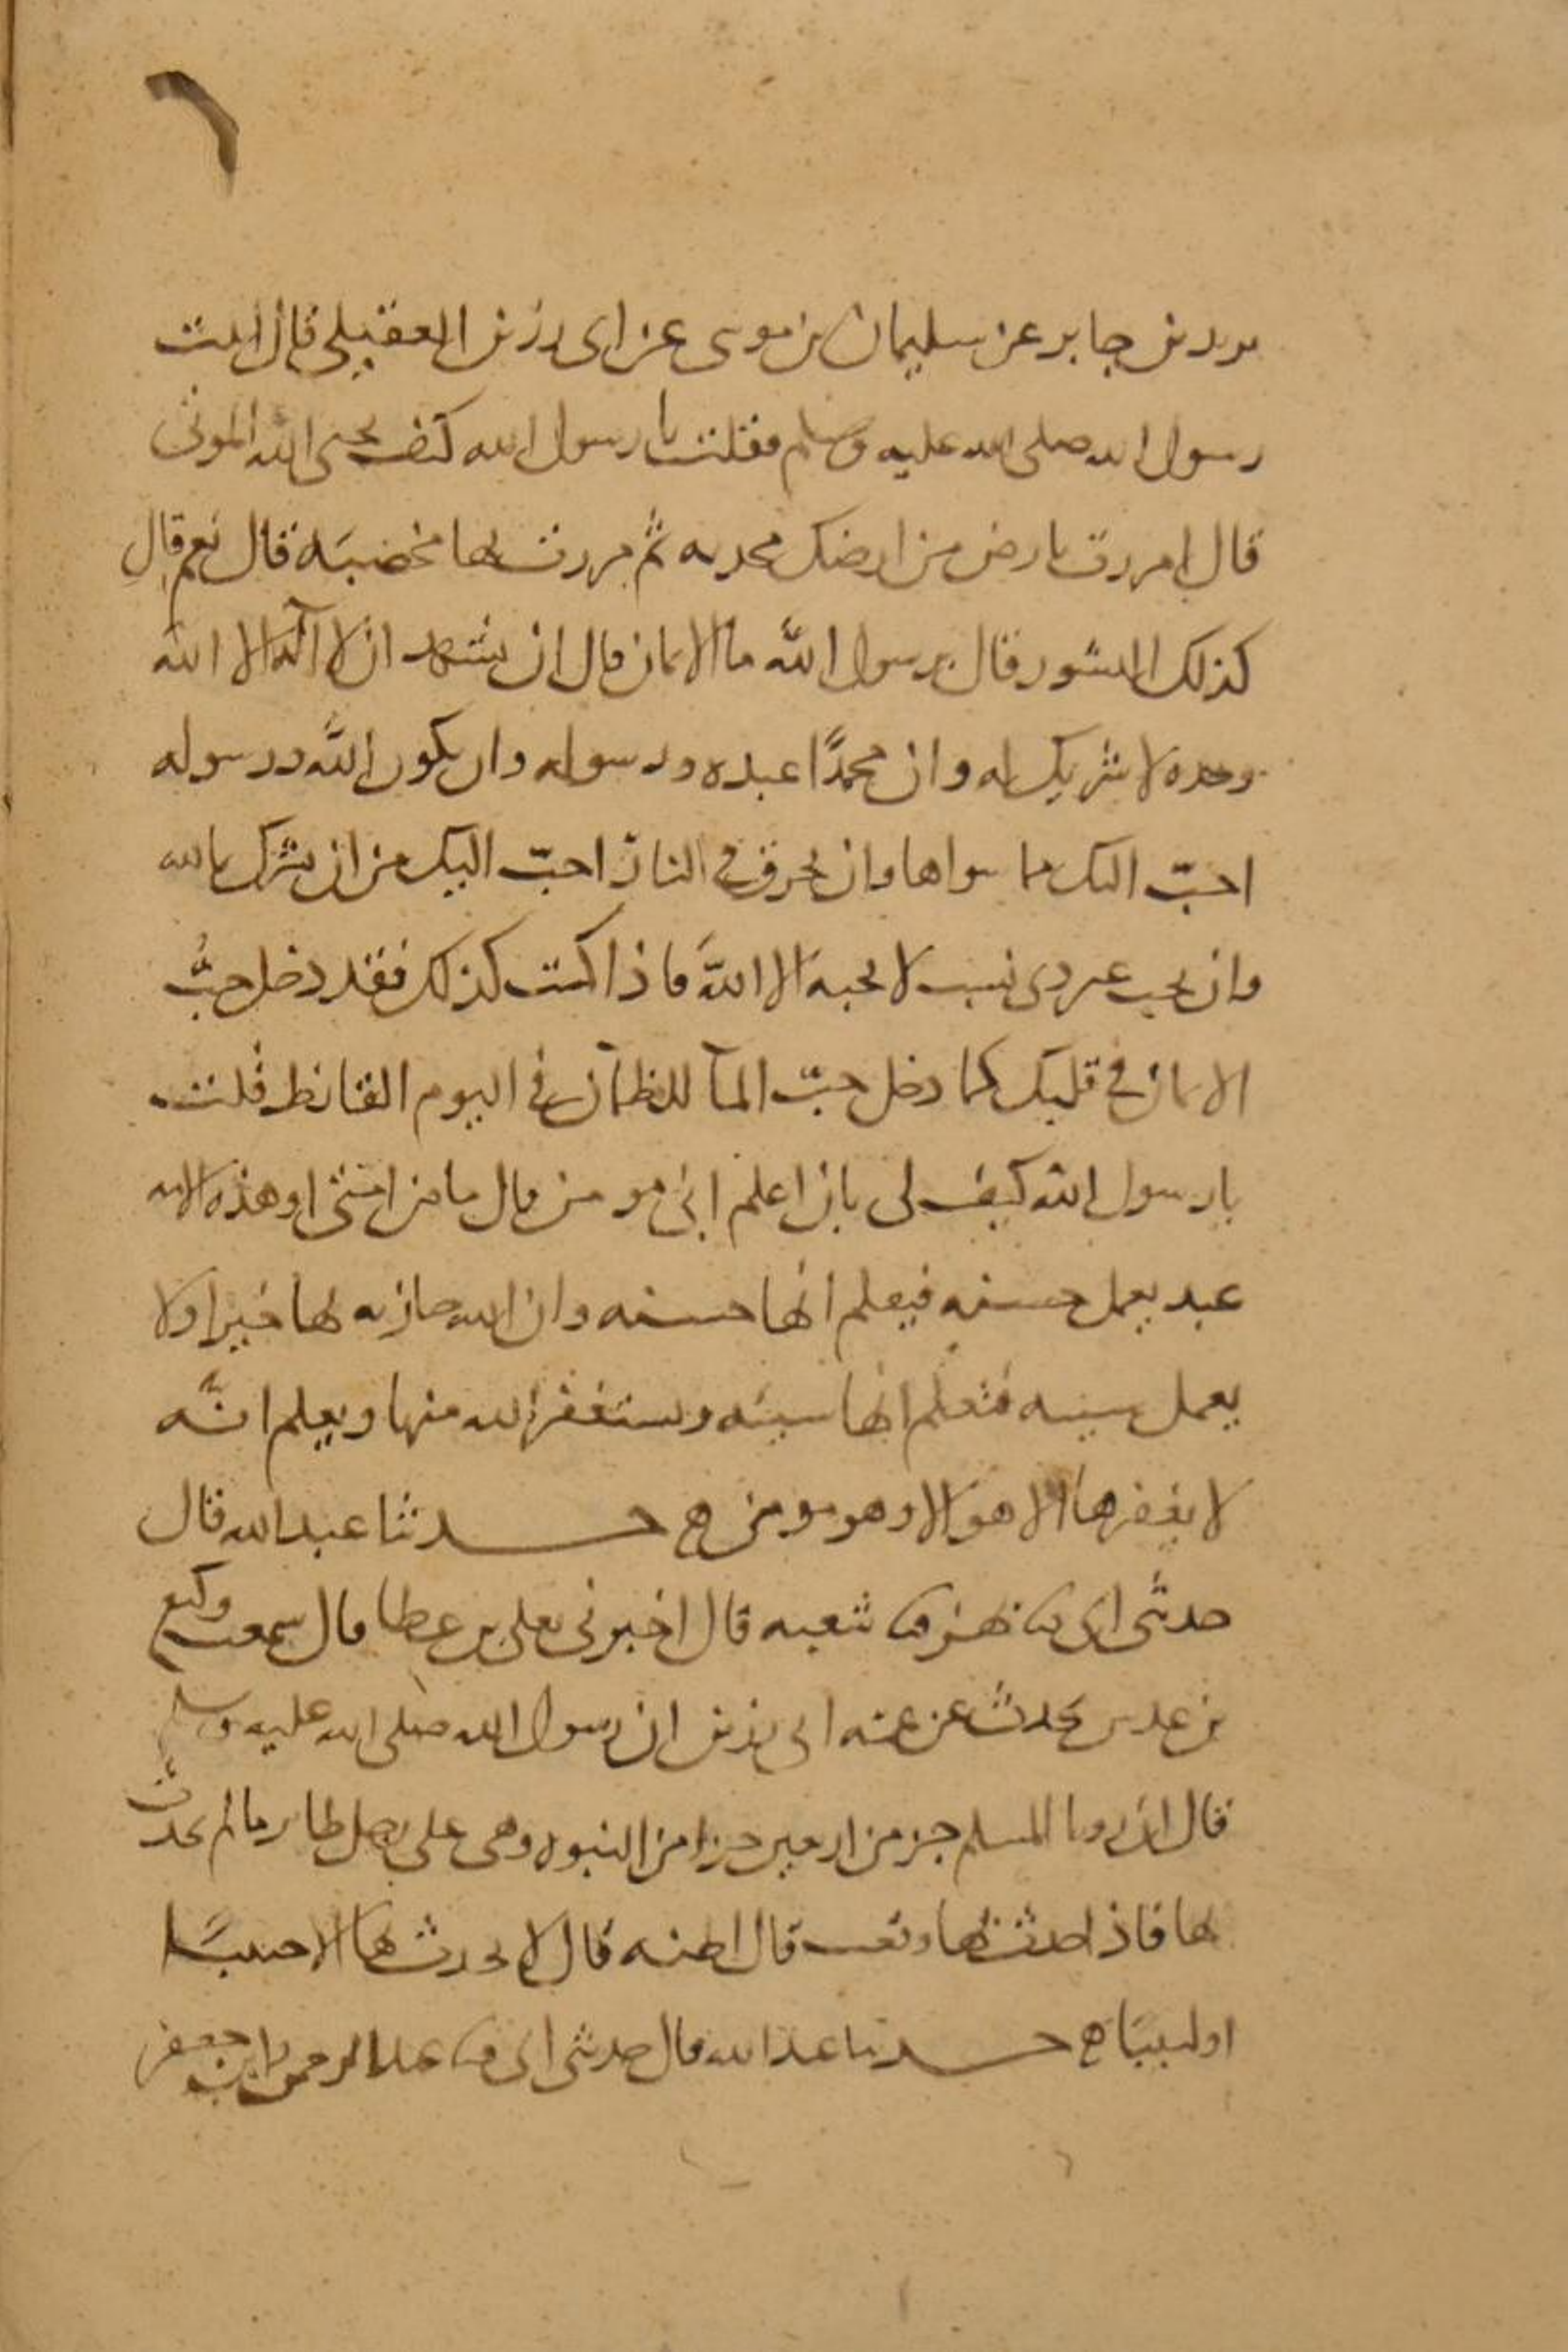 ٦
يريد بن جابر عن سليمان بن موسى عن ابى رزين العقيلى قال اتيت
رسول الله صلى الله عليه وسلم فقلت يا رسول الله كيف يحيى الله الموتى
قال امررت بارض من ارضك مجدبه ثم مررت بها مخصبه قال نعم قال
كذلك النشور قال يرسول الله ما الايمان قال ان تشهد ان لا اله الا الله
وحده لا شريك له وان محمدًا عبده ورسوله وان يكون الله ورسوله
احبّ اليك مما سواهما وان تحرق في النار احبّ اليك من ان تشرك بالله
وان تحب غير ذى نسب لا تحبه الا الله فاذا كنت كذلك فقد دخل حبُّ
الايمان في قلبك كما دخل حبّ المآ للظمآن في اليوم القائظ قلت
يا رسول الله كيف لى بان اعلم انى مومن قال ما من امتى او هذه الامه
عبد يعمل حسنه فيعلم انها حسنه وان الله جازيه بها خيرا ولا
يعمل سيئه فيعلم انها سيئه ويستغفر الله منها ويعلم انّه
لا يغفرها الا هو الا وهو مومن ه حدثنا عبد الله قال
حدثنى ابى ثنا بهز ثنا شعبه قال اخبرنى يعلى بن عطا قال سمعت وكيع
بن عدس يحدث عن عمه ابى رزين ان رسول الله صلى الله عليه وسلم
قال ان رويا المسلم جز من اربعين جزا من النبوه وهى على رجل طاير ما لم يحدث
بها فاذا حدث بها وقعت قال اظنه قال لا يحدث بها الا حبيبًا
او لبيبًا ه حدثنا عبد الله قال حدثنى ابى ثنا محمد بن جعفر